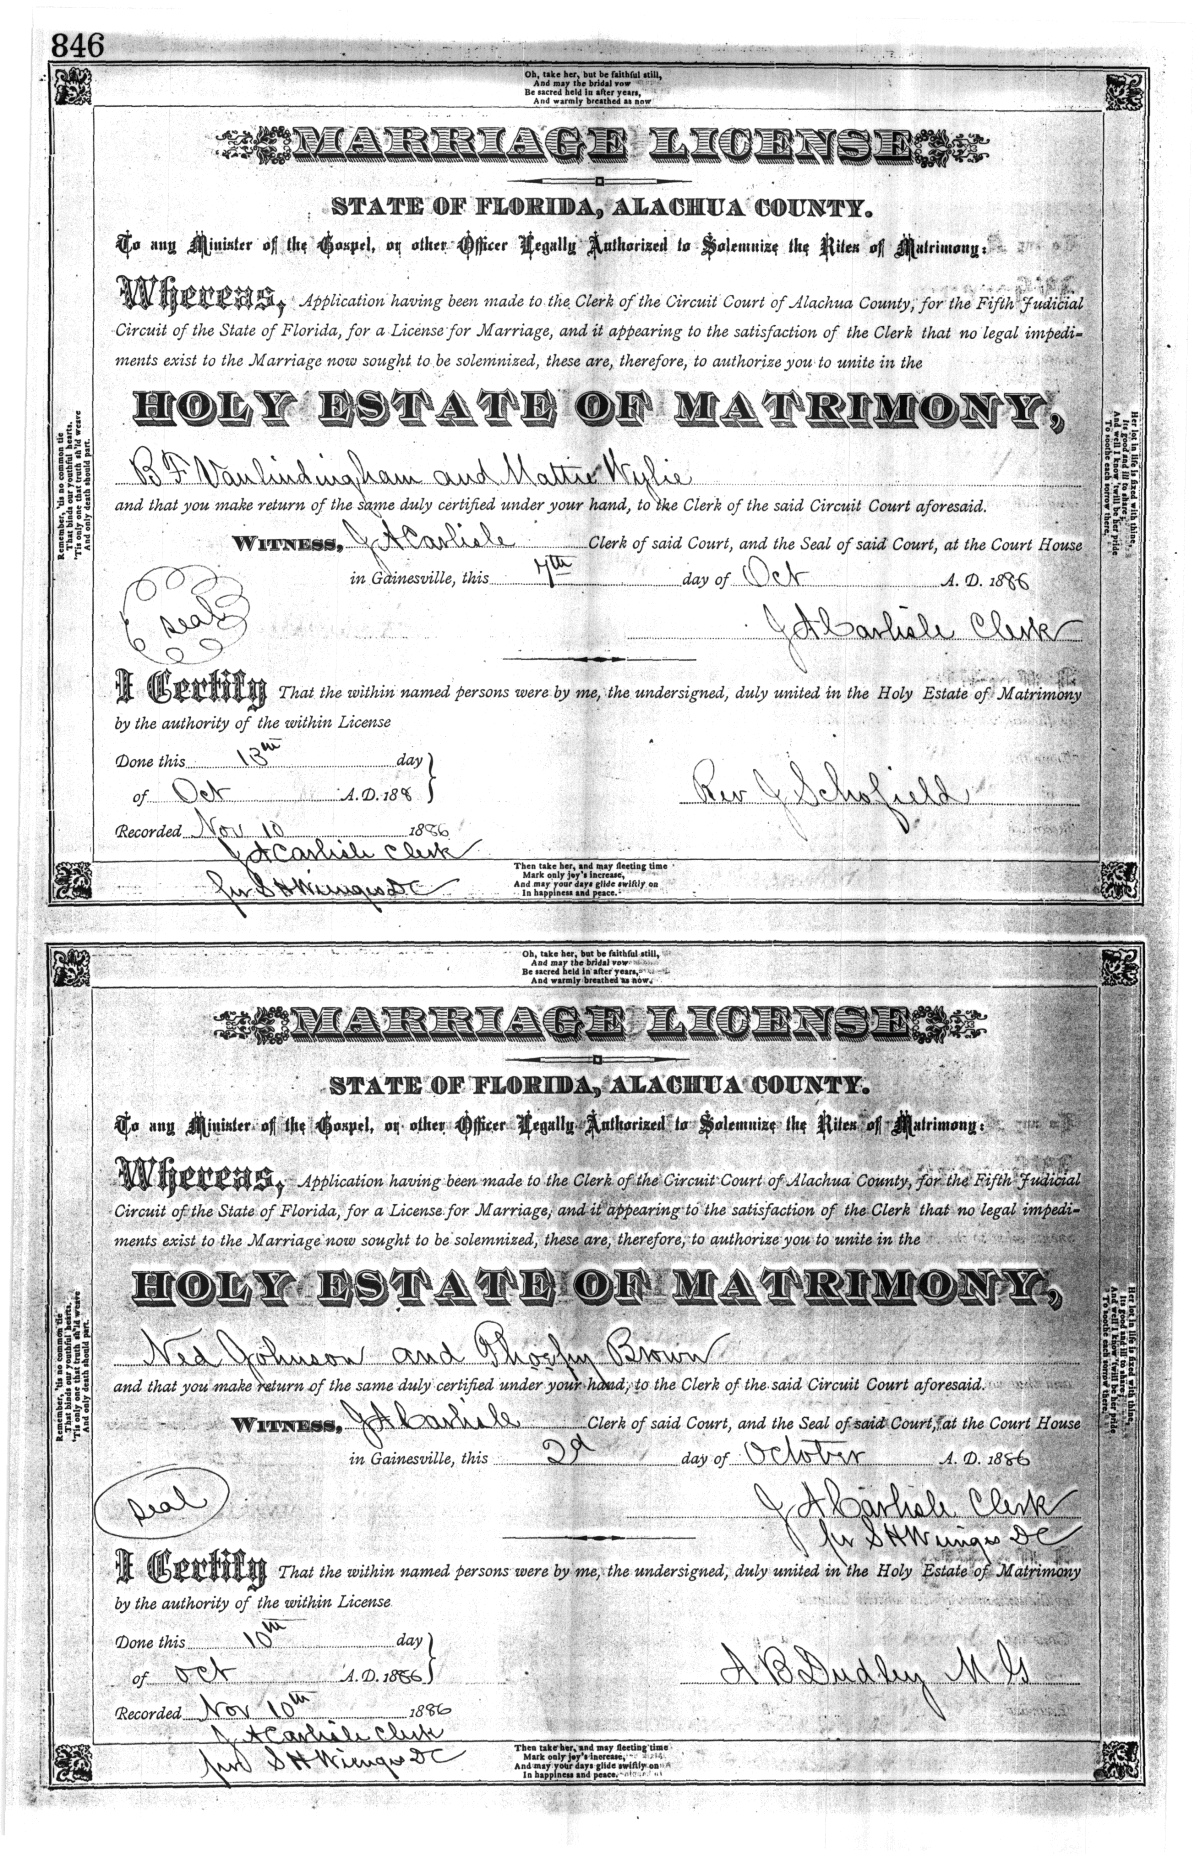 846
Oh, take her, but be faithful still,
And may the bridal vow
Be sacred held in after years,
And warmly breathed as now
MARRIAGE LICENSE
STATE OF FLORIDA, ALACHUA COUNTY.
To any Minister of the Gospel, or other Officer Legally Authorized to Solemnize the Rites of Matrimony:
Whereas, Application having been made to the Clerk of the Circuit Court of Alachua County, for the Fifth Judicial
Circuit of the State of Florida, for a License for Marriage, and it appearing to the satisfaction of the Clerk that no legal impedi-
ments exist to the Marriage now sought to be solemnized, these are, therefore, to authorize you to unite in the
HOLY ESTATE OF MATRIMONY,
B F Vanlindingham and Mattie Wylie
and that you make return of the same duly certified under your hand, to the Clerk of the said Circuit Court aforesaid.
WITNESS, J A Carlisle Clerk of said Court, and the Seal of said Court, at the Court House
in Gainesville, this 7th day of Oct A. D. 1886
seal
J A Carlisle Clerk
I Certify That the within named persons were by me, the undersigned, duly united in the Holy Estate of Matrimony
by the authority of the within License
Done this 13th day
of Oct A.D. 188
Rev J Schofield
Recorded Nov 10 1886
J A Carlisle Clerk
per S H Wienges DC
Then take her, and may fleeting time
Mark only joy's increase,
And may your days glide swiftly on
In happiness and peace.
Remember, 'tis no common tie
That binds our youthful hearts,
'Tis only one that truth sh'ld weave
And only death should part.
Her lot in life is fixed with thine,
Its good and ill to share;
And well I know 'twill be her pride
To soothe each sorrow there,
Oh, take her, but be faithful still,
And may the bridal vow
Be sacred held in after years,
And warmly breathed as now.
MARRIAGE LICENSE
STATE OF FLORIDA, ALACHUA COUNTY.
To any Minister of the Gospel, or other Officer Legally Authorized to Solemnize the Rites of Matrimony:
Whereas, Application having been made to the Clerk of the Circuit Court of Alachua County, for the Fifth Judicial
Circuit of the State of Florida, for a License for Marriage, and it appearing to the satisfaction of the Clerk that no legal impedi-
ments exist to the Marriage now sought to be solemnized, these are, therefore, to authorize you to unite in the
HOLY ESTATE OF MATRIMONY,
Ned Johnson and Phoeby Brown
and that you make return of the same duly certified under your hand, to the Clerk of the said Circuit Court aforesaid.
WITNESS, J A Carlisle Clerk of said Court, and the Seal of said Court, at the Court House
in Gainesville, this 2d day of October A. D. 1886
seal
J A Carlisle Clerk
per S H Wienges DC
I Certify That the within named persons were by me, the undersigned, duly united in the Holy Estate of Matrimony
by the authority of the within License
Done this 10th day
of Oct A.D. 1886
A B Dudley M G
Recorded Nov 10th 1886
J A Carlisle Clerk
per S H Wienges DC
Then take her, and may fleeting time
Mark only joy's increase,
And may your days glide swiftly on
In happiness and peace.
Remember, 'tis no common tie
That binds our youthful hearts,
'Tis only one that truth sh'ld weave
And only death should part.
Her lot in life is fixed with thine,
Its good and ill to share;
And well I know 'twill be her pride
To soothe each sorrow there,